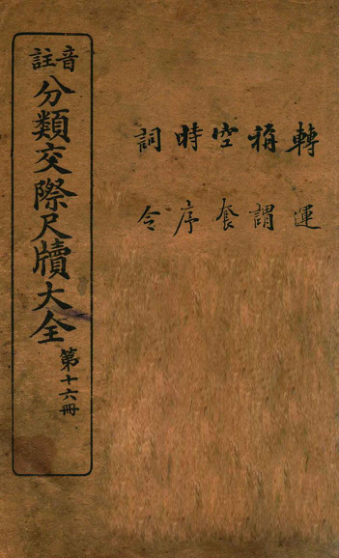 轉運
稱謂
空套
時序
詞令
音註
分類交際尺牘大全
第十六冊